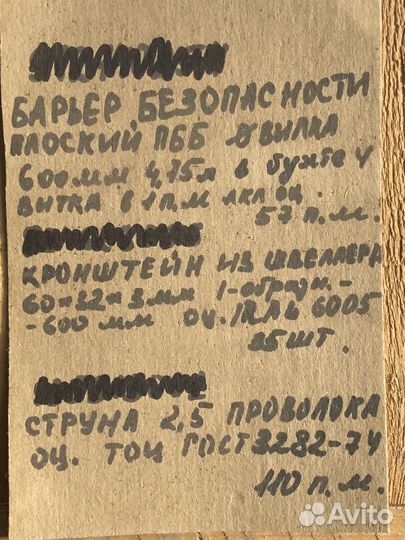 БАРЬЕР БЕЗОПАСНОСТИ
ПЛОСКИЙ ПББ ЕГОЗА
600 мм 4,75л в бухте 4
витка в 1 п.м акл оц.
57 п.м.
КРОНШТЕЙН ИЗ ШВЕЛЛЕРА
60×32×3мм 1-образн.-
-600 мм оц. RAL 6005
25шт.
СТРУНА 2,5 ПРОВОЛОКА
оц. ТОЦ ГОСТ3282-74
110 п.м.
Avito